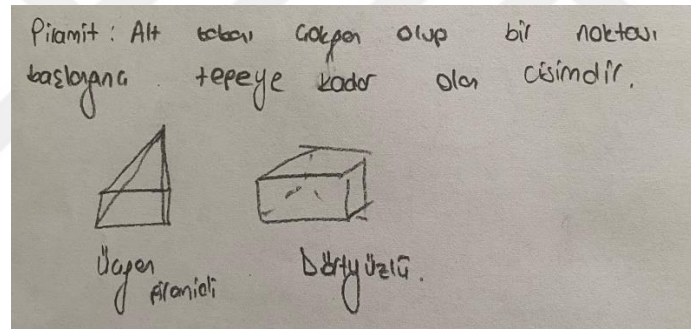 Piramit : Alt tabanı Çokgen olup bir noktası
başlangıç tepeye kadar olan cisimdir.
Üçgen Dörtyüzlü.
piramidi